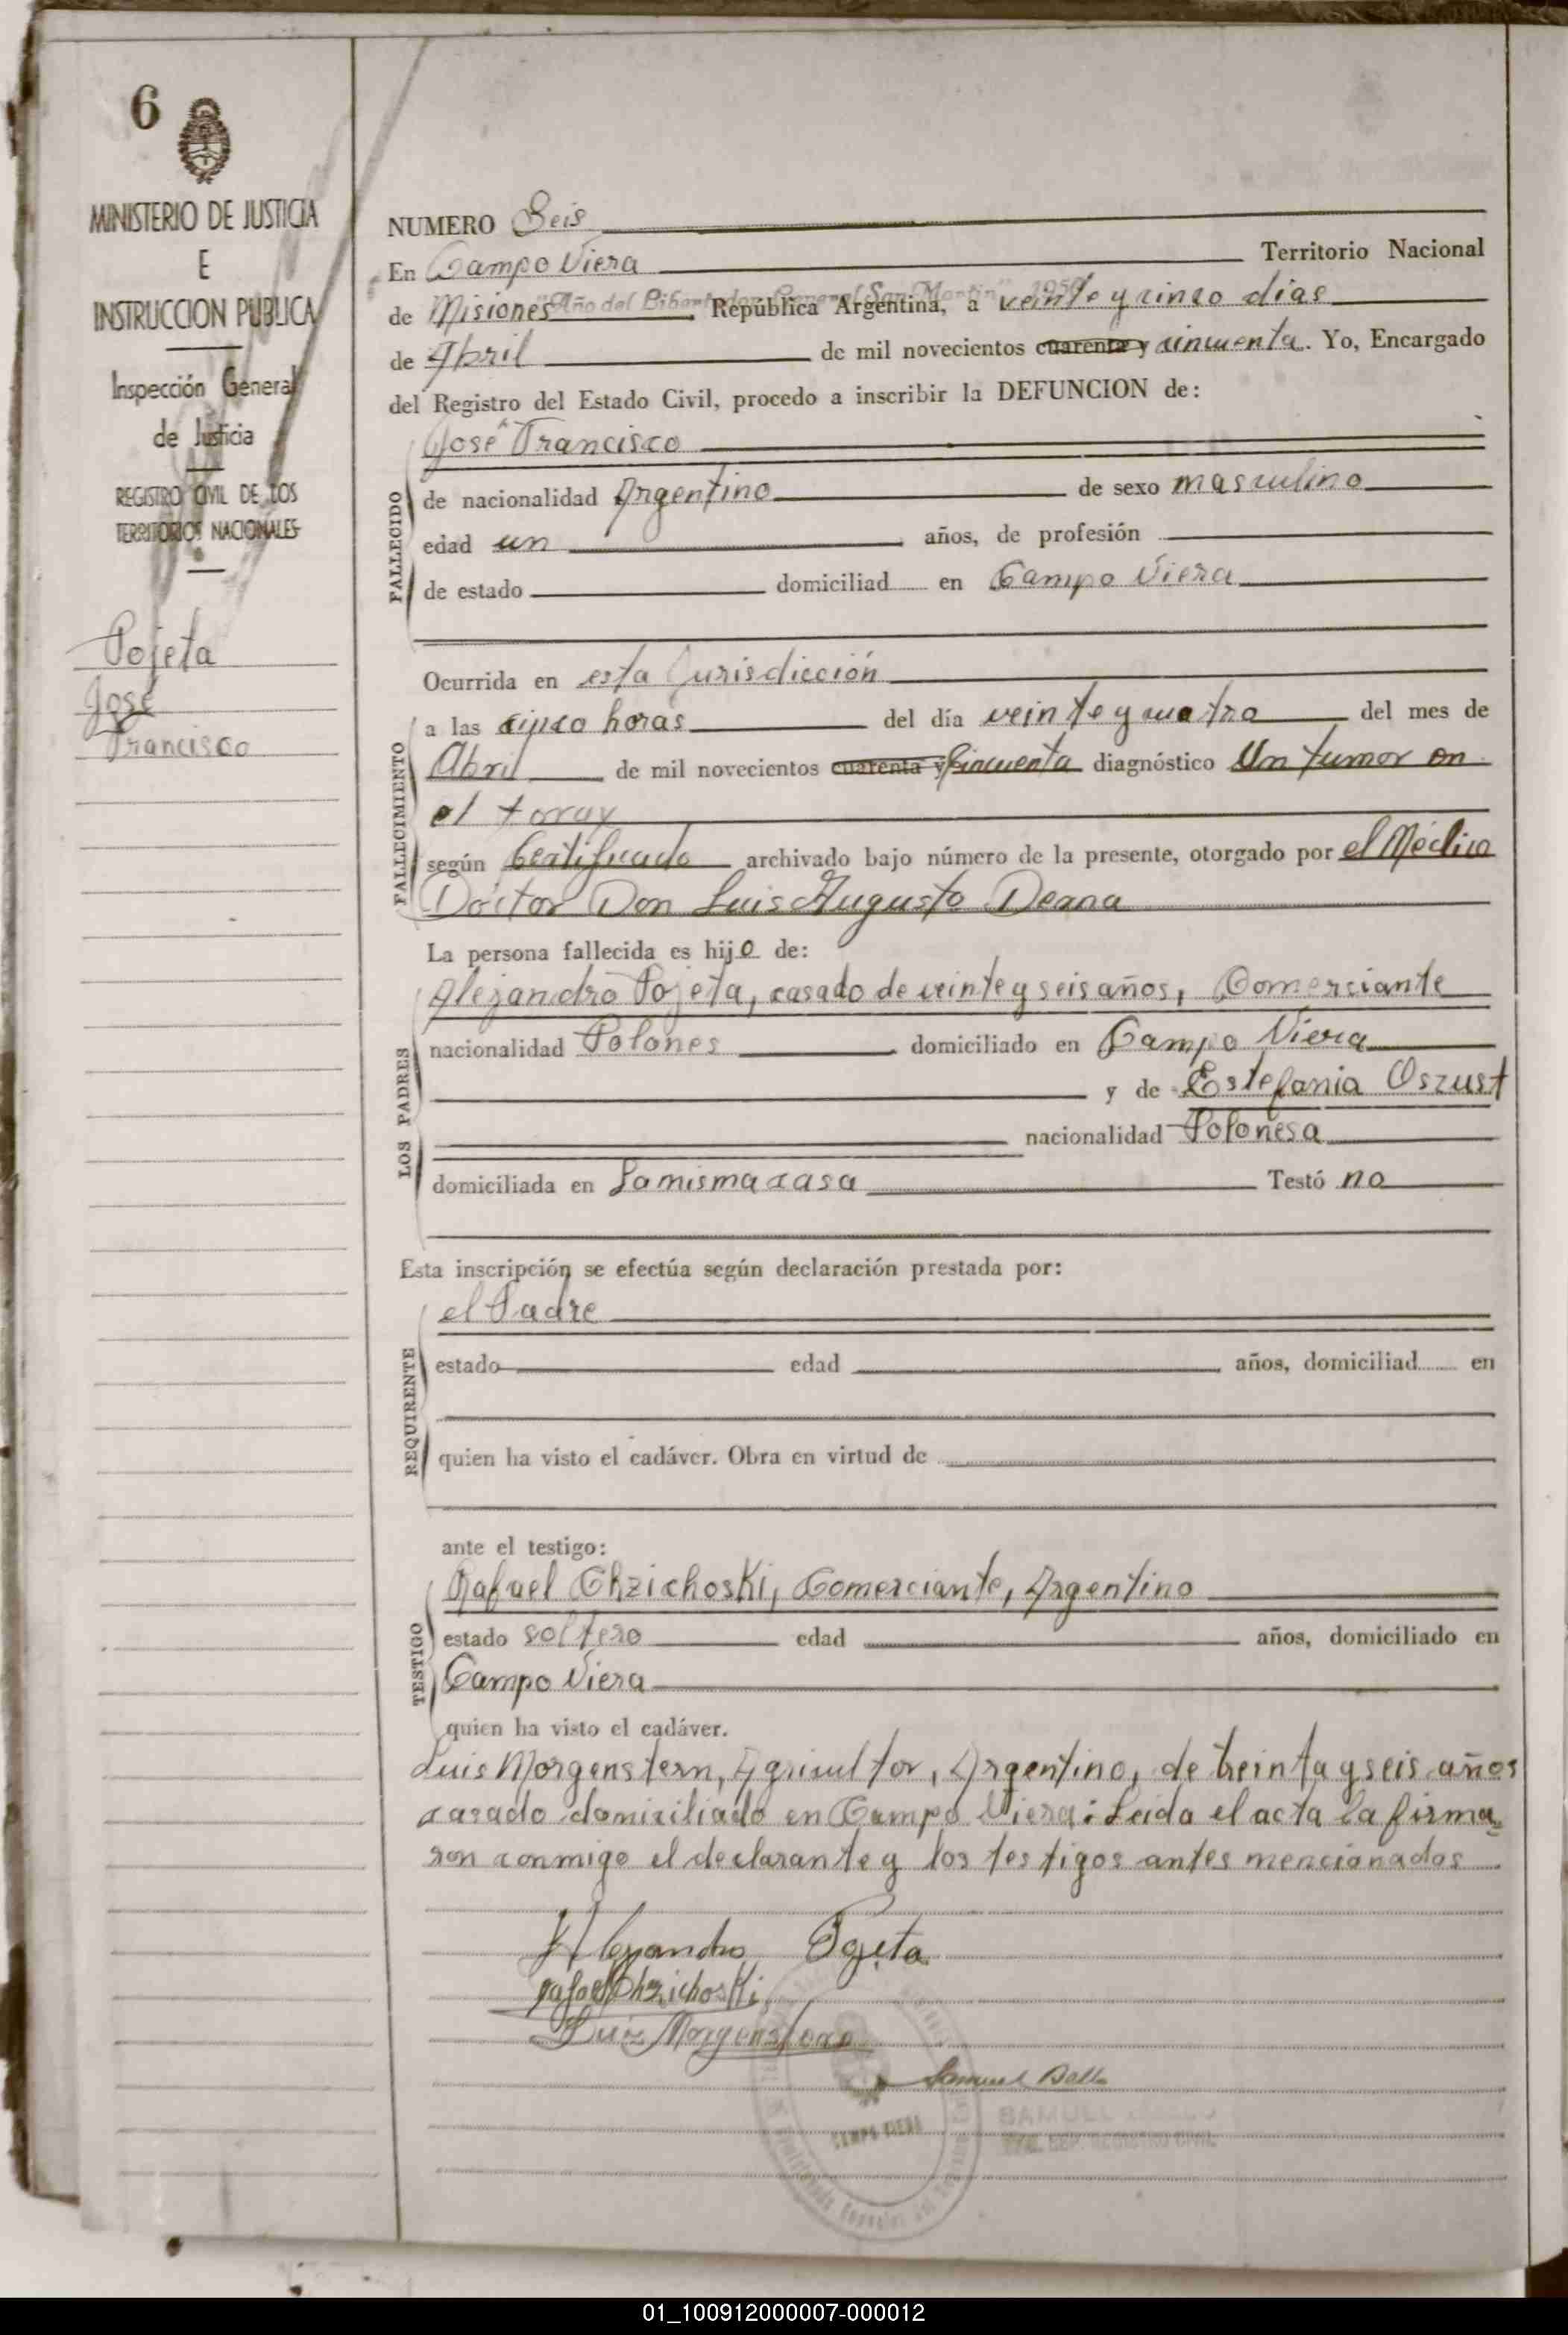 6
MINISTERIO DE JUSTICIA
E
INSTRUCCION PUBLICA
Inspección General
de Justicia
REGISTRO CIVIL DE LOS
TERRITORIOS NACIONALES
Pojeta
José
Francisco
NUMERO Seis
En Campo Viera Territorio Nacional
"Año del Libertador General San Martin" 1950
de Misiones República Argentina, a veinte y cinco dias
de Abril de mil novecientos cuarenta y cincuenta. Yo, Encargado
del Registro del Estado Civil, procedo a inscribir la DEFUNCION de:
José Francisco
FALLECIDO
de nacionalidad Argentino de sexo masculino
edad un años, de profesión
de estado domiciliad en Campo Viera
Ocurrida en esta Jurisdicción
FALLECIMIENTO
a las cinco horas del día veinte y cuatro del mes de
Abril de mil novecientos cuarenta y Cincuenta diagnóstico Un tumor en
el torax
según Certificado archivado bajo número de la presente, otorgado por el Médico
Doctor Don Luis Augusto Derna
La persona fallecida es hijo de:
LOS PADRES
Alejandro Pojeta, casado de veinte y seis años, Comerciante
nacionalidad Polones domiciliado en Campo Viera
y de Estefania Oszust
nacionalidad Polonesa
domiciliada en La misma casa Testó no
Esta inscripción se efectúa según declaración prestada por:
REQUIRENTE
el Padre
estado edad años, domiciliad en
quien ha visto el cadáver. Obra en virtud de
ante el testigo:
TESTIGO
Rafael Chzichoski, Comerciante, Argentino
estado soltero edad años, domiciliado en
Campo Viera
quien ha visto el cadáver.
Luis Morgenstern, Agricultor, Argentino, de treinta y seis años
casado domiciliado en Campo Viera: Leida el acta la firma=
ron conmigo el declarante y los testigos antes mencionados
Alejandro Pojeta
Rafael Chzichoski
Luiz Morgenstern
Samuel Bello
CAMPO VIERA
SAMUEL
REGISTRO CIVIL
01_100912000007-000012